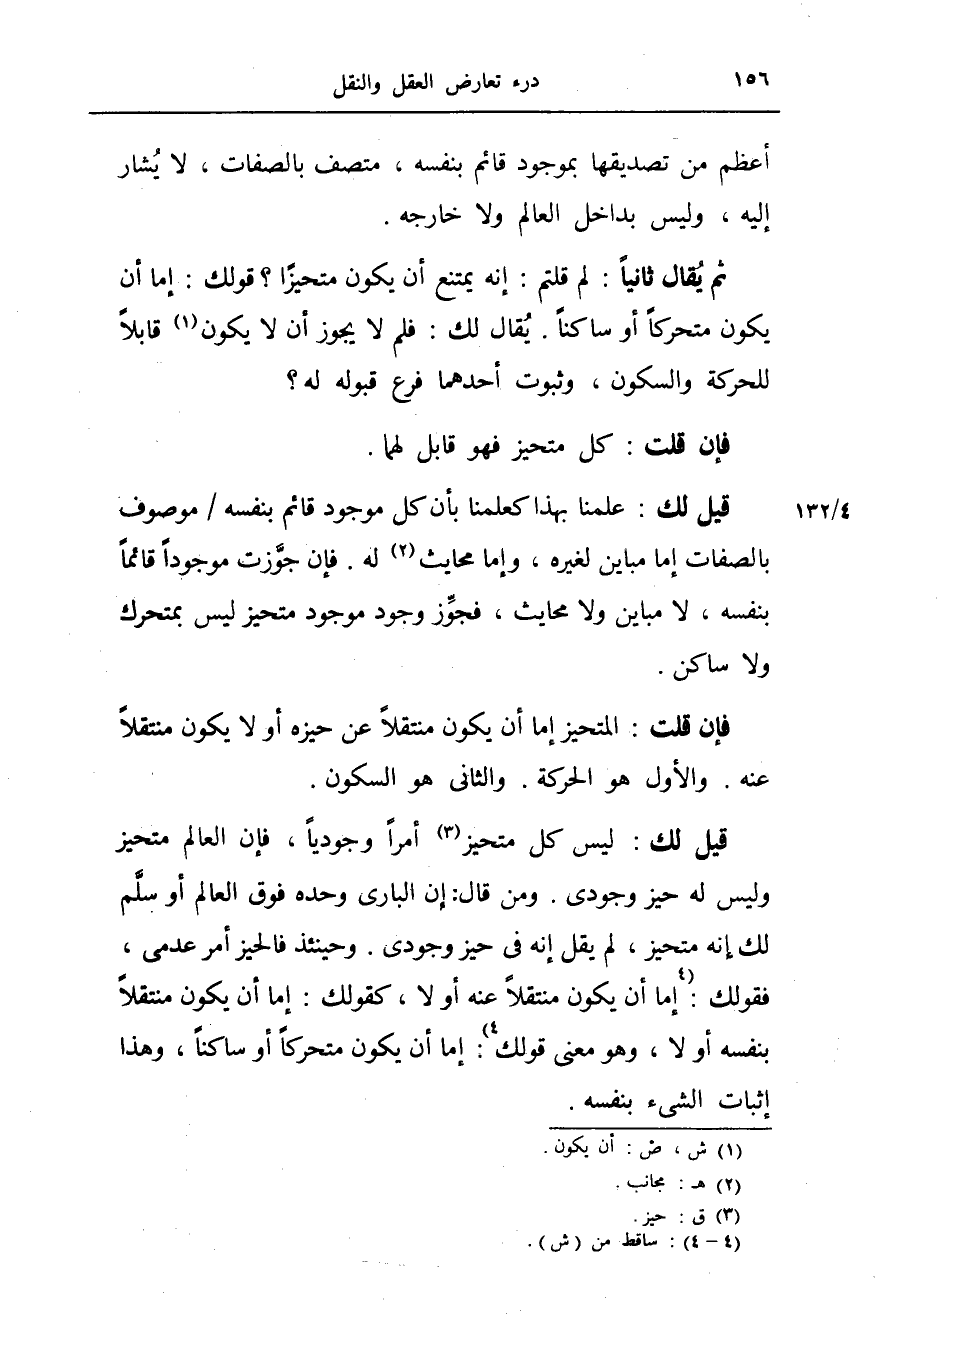 ١٥٦ درء تعارض العقل والنقل
أعظم من تصديقها بموجود قائم بنفسه ، متصف بالصفات ، لا يُشار
إليه ، وليس بداخل العالم ولا خارجه .
ثم يُقال ثانياً : لم قلتم : إنه يمتنع أن يكون متحيزًا ؟ قولك : إما أن
يكون متحركاً أو ساكناً . يُقال لك : فلم لا يجوز أن لا يكون(١) قابلاً
للحركة والسكون ، وثبوت أحدهما فرع قبوله له ؟
فإن قلت : كل متحيز فهو قابل لهما .
قيل لك : علمنا بهذا كعلمنا بأن كل موجود قائم بنفسه / موصوف ١٣٢/٤
بالصفات إما مباين لغيره ، وإما محايث(٢) له . فإن جوَّزت موجوداً قائماً
بنفسه ، لا مباين ولا محايث ، فجوِّز وجود موجود متحيز ليس بمتحرك
ولا ساكن .
فإن قلت : المتحيز إما أن يكون منتقلاً عن حيزه أو لا يكون منتقلاً
عنه . والأول هو الحركة . والثانى هو السكون .
قيل لك : ليس كل متحيز(٣) أمراً وجودياً ، فإن العالم متحيز
وليس له حيز وجودى . ومن قال: إن البارى وحده فوق العالم أو سلَّم
لك إنه متحيز ، لم يقل إنه فى حيز وجودى . وحينئذ فالحيز أمر عدمى ،
فقولك :(٤ إما أن يكون منتقلاً عنه أو لا ، كقولك : إما أن يكون منتقلاً
بنفسه أو لا ، وهو معنى قولك٤) : إما أن يكون متحركاً أو ساكناً ، وهذا
إثبات الشىء بنفسه .
(١) ش ، ض : أن يكون .
(٢) هـ : مجانب .
(٣) ق : حيز .
(٤ – ٤) : ساقط من ( ش ) .